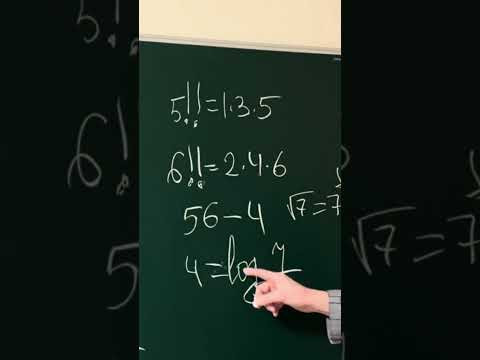 5!!=1·3·5
6!!=2·4·6
56-4
√7=7
√7=7
4=log 7